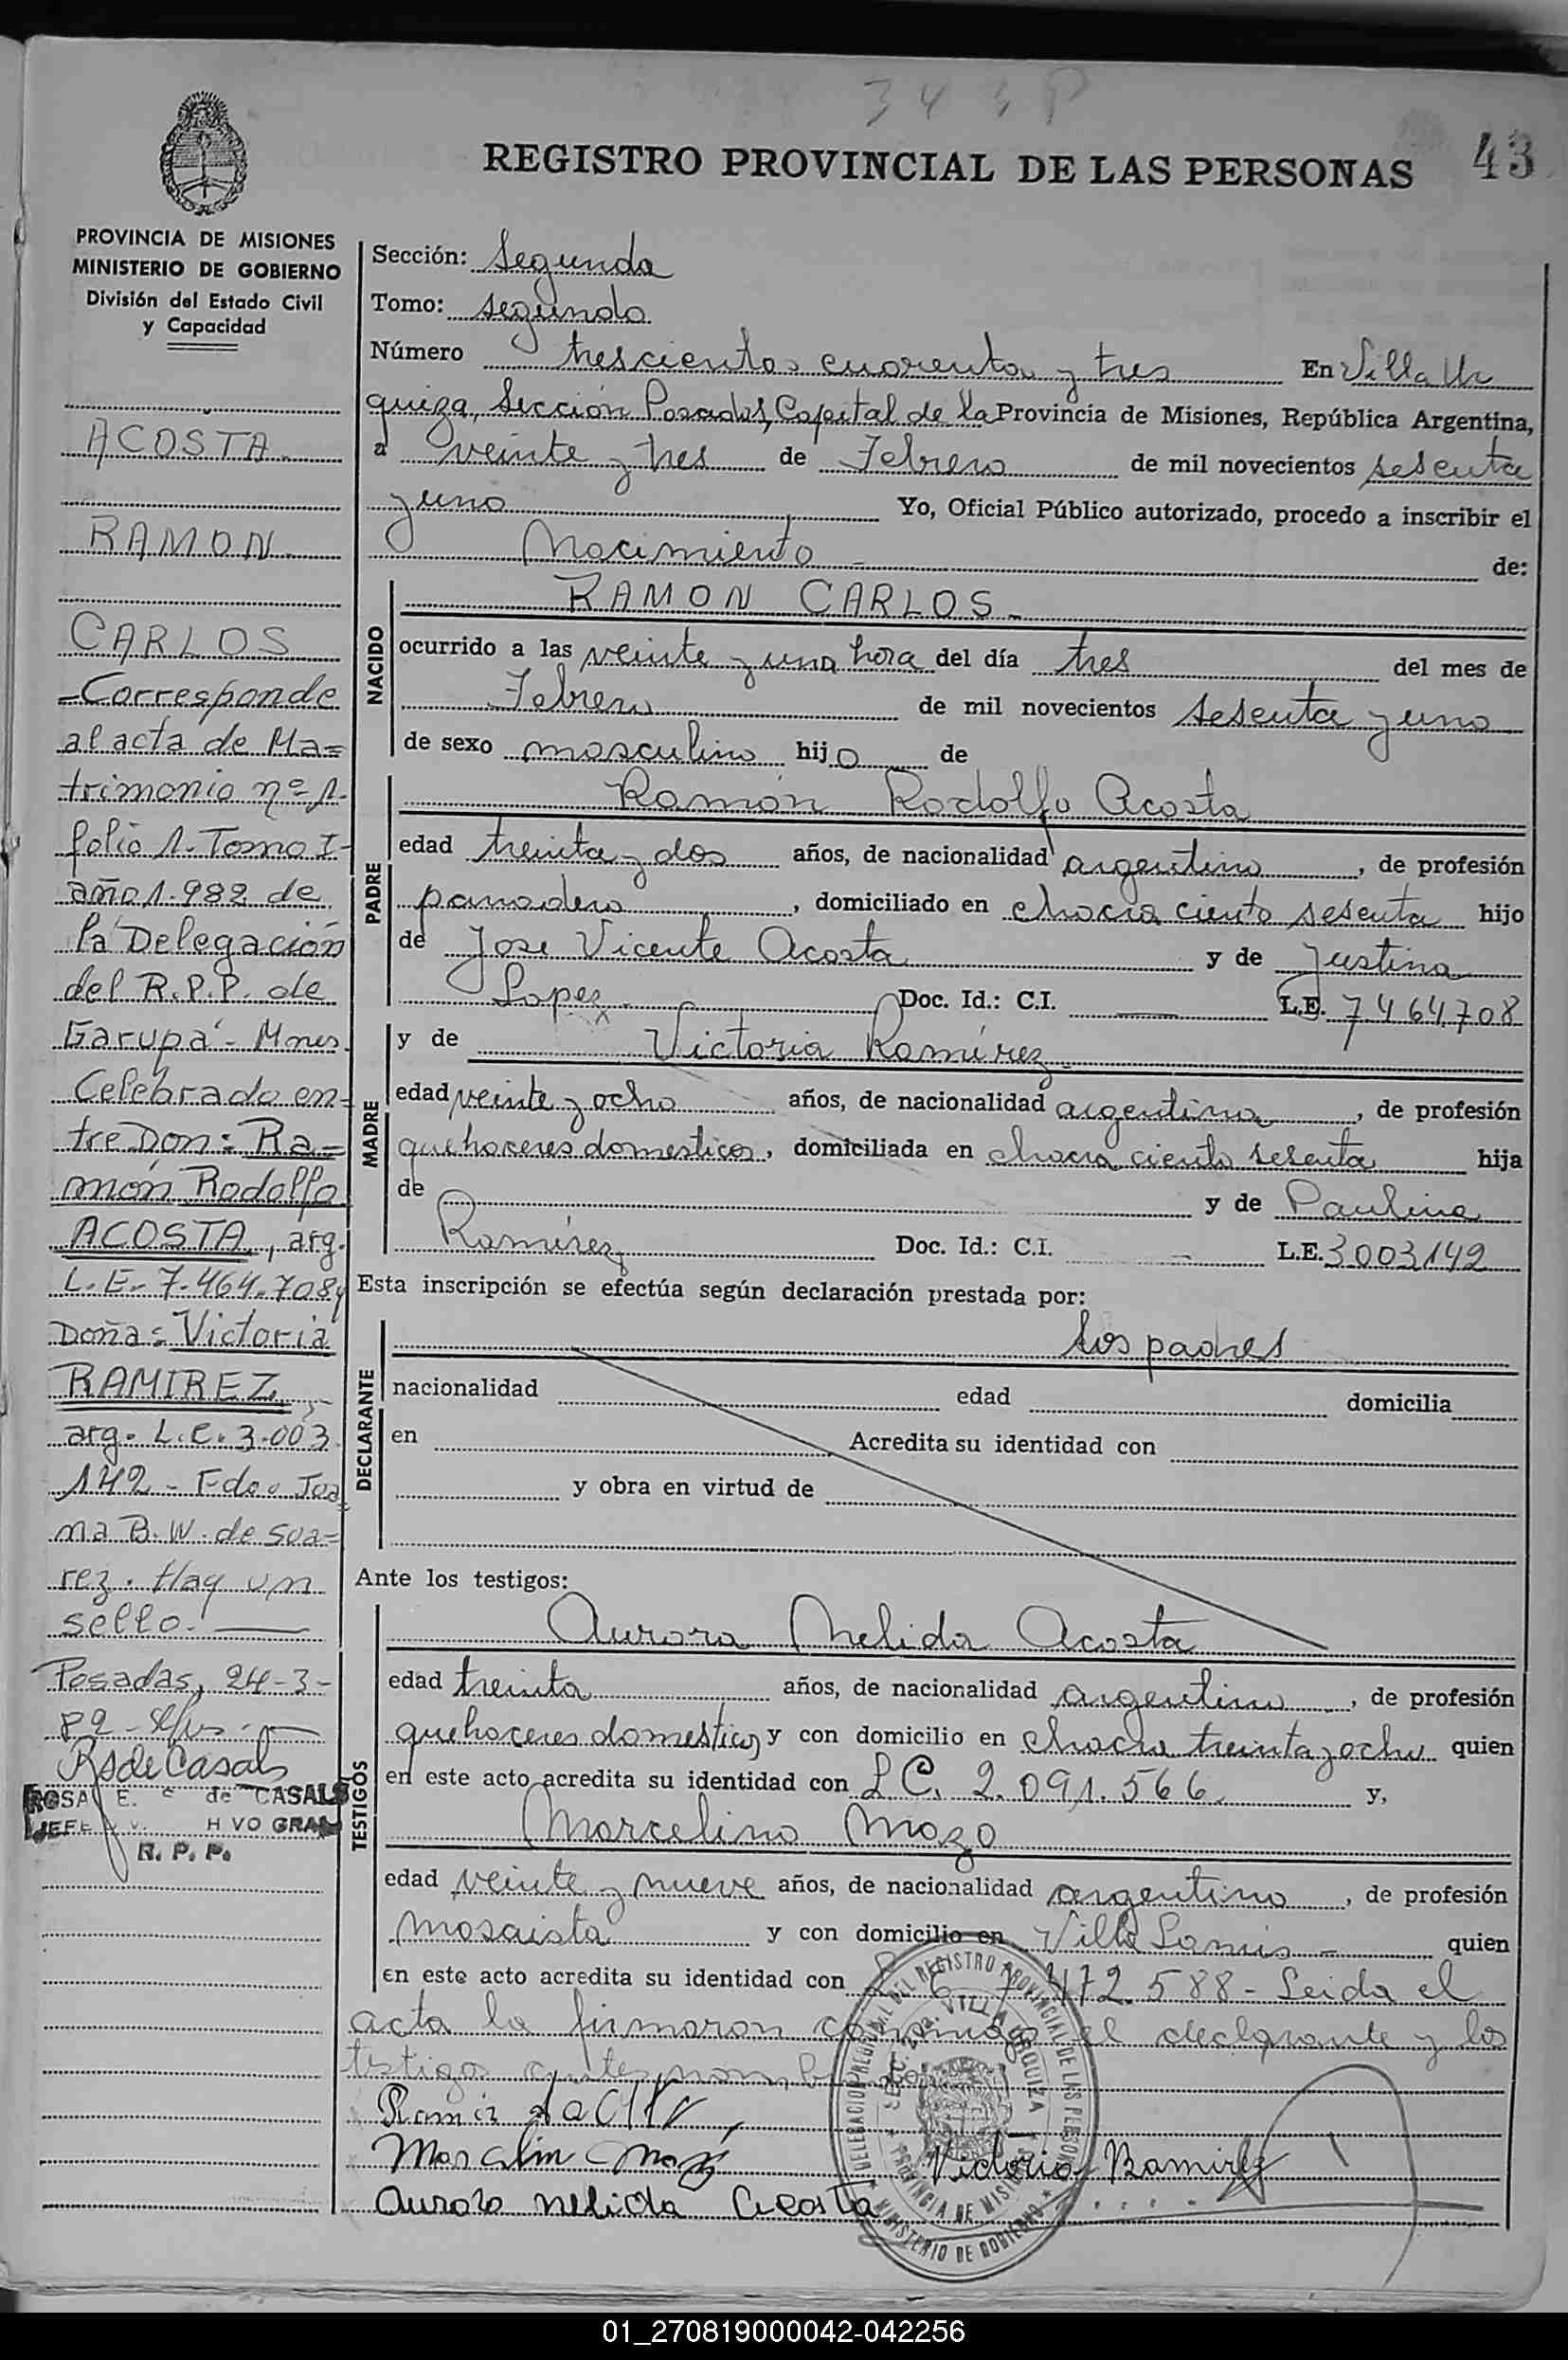 343 P
REGISTRO PROVINCIAL DE LAS PERSONAS
43
PROVINCIA DE MISIONES
MINISTERIO DE GOBIERNO
División del Estado Civil
y Capacidad
ACOSTA
RAMON
CARLOS
Corresponde
al acta de Ma=
trimonio nº 1.
folio 1. Tomo I-
año 1.982 de
la Delegación
del R.P.P. de
Garupá - Mnes.
Celebrado en-
tre Don: Ra=
món Rodolfo
ACOSTA, arg.
L.E. 7.464.708 y
Doña: Victoria
RAMIREZ,
arg. L.C. 3.003.
142 - Fdo. Joa
na B. W. de Sua=
rez. Hay un
sello.
Posadas, 24-3-
82 -
R de Casals
ROSA E. de CASALS
JEFE HVO GRAL
R. P. P.
Sección: Segunda
Tomo: segundo
Número trescientos cuarenta y tres En Villa Ur
quiza, Sección Posadas, Capital de la Provincia de Misiones, República Argentina,
a veinte y tres de Febrero de mil novecientos sesenta
y uno Yo, Oficial Público autorizado, procedo a inscribir el
Nacimiento de:
NACIDO
RAMON CARLOS
ocurrido a las veinte y una hora del día tres del mes de
Febrero de mil novecientos sesenta y uno
de sexo masculino hijo de
PADRE
Ramón Rodolfo Acosta
edad treinta y dos años, de nacionalidad argentino, de profesión
panadero, domiciliado en chacra ciento sesenta hijo
de Jose Vicente Acosta y de Justina
Lopez Doc. Id.: C.I. — L.E. 7464708
MADRE
y de Victoria Ramírez
edad veinte y ocho años, de nacionalidad argentina, de profesión
quehaceres domesticos, domiciliada en chacra ciento sesenta hija
de y de Paulina
Ramírez Doc. Id.: C.I. — L.E. 3003142
Esta inscripción se efectúa según declaración prestada por:
DECLARANTE
los padres
nacionalidad edad domicilia
en Acredita su identidad con
y obra en virtud de
Ante los testigos:
TESTIGOS
Aurora Nelida Acosta
edad treinta años, de nacionalidad argentino, de profesión
quehaceres domesticos y con domicilio en chacra treinta y ocho quien
en este acto acredita su identidad con L C. 2.091.566 y,
Marcelino Mozo
edad veinte y nueve años, de nacionalidad argentino, de profesión
mosaista y con domicilio en Villa Lanús - quien
en este acto acredita su identidad con 7.472.588 - Leida el
acta la firmaron conmigo el declarante y los
testigos antes nombrados
Marcelin Mozo
Victoria Ramirez
Aurora nelida Acosta
DELEGACION REGIONAL DEL REGISTRO PROVINCIAL DE LAS PERSONAS
SECC. 2da. VILLA URQUIZA
PROVINCIA DE MISIONES
MINISTERIO DE GOBIERNO
01_270819000042-042256